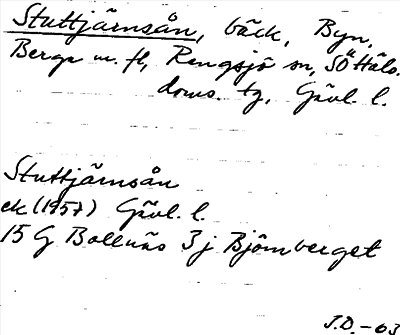 Stuttjärnsån, bäck, Byn,
Berge m. fl, Rengsjö sn, SÖHäls.
doms. tg, Gävl. l.
Stuttjärnsån
ek (1957) Gävl. l.
15 G Bollnäs 3 j Björnberget
J.D. - 63